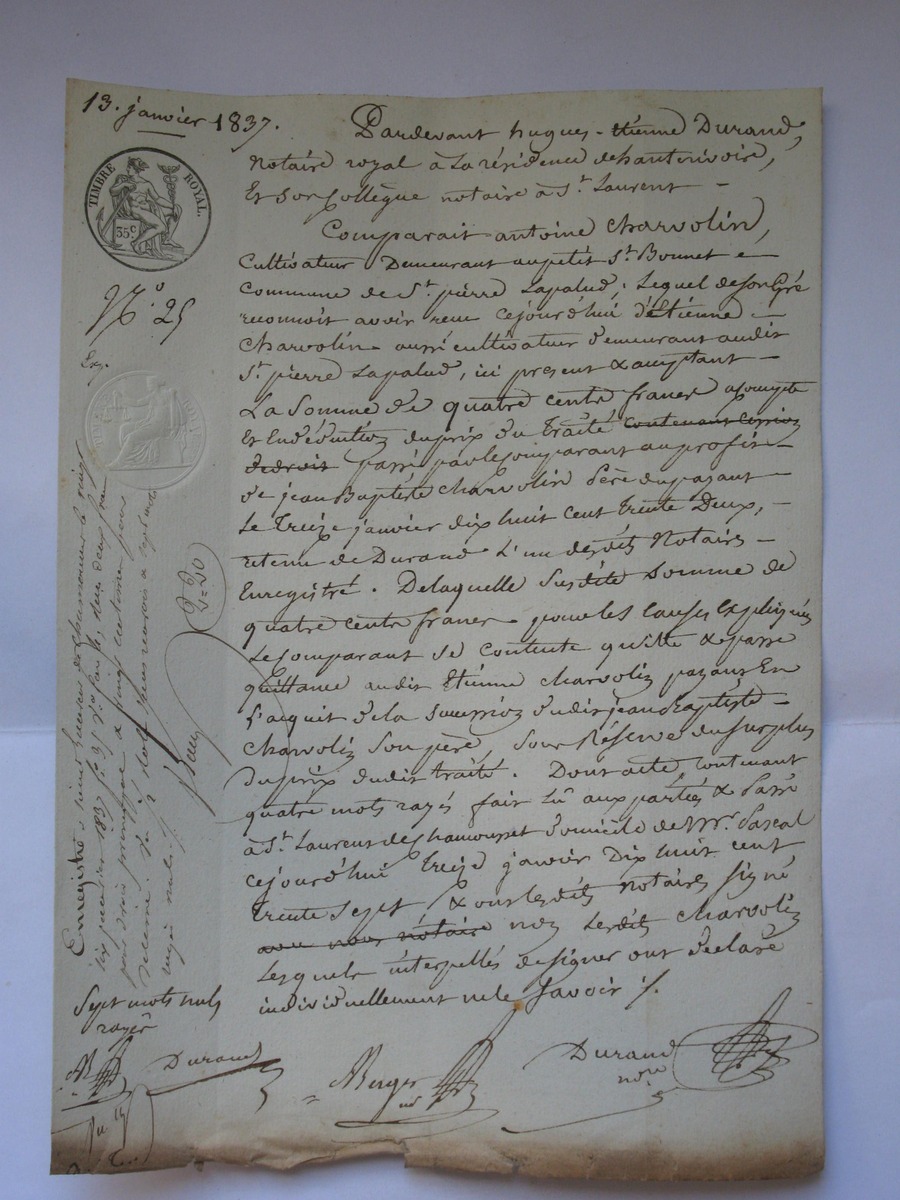 13. janvier 1837.
TIMBRE ROYAL.
35c
N.o 25
Pardevant hugues-étienne Durand,
Notaire royal à la résidence de hauterivoire,
Et son Collègue notaire à St. Laurent -
Comparait antoine Charvolin,
Cultivateur Demeurant au petit St. Bonnet
commune de St. pierre Lapalud, Lequel de son Gré
reconnoit avoir reçu cejourd'hui d'Etienne -
Charvolin aussi cultivateur demeurant audit
St. pierre Lapalud, ici présent & acceptant -
La Somme de quatre cents francs acompte
Et En déduction du prix du traité contenant cession
de droit passé par le Comparant au profit -
de jean Baptiste Charvolin père du payant -
Le Treize janvier dix huit cent trente Deux, -
retenu de Durand L'un desdits Notaires -
Enregistré. De laquelle Susdite Somme de
quatre cents francs pour les Causes Expliquées
Le Comparant se contente quitte & passe
quittance audit Etienne Charvolin payant En
l'acquit de la dudit jean Baptiste -
Charvolin Son père, Sous Réserve du surplus
Du prix dudit traité. Dont acte, contenant
quatre mots rayés fait lû aux parties & Passé
à St. Laurent de Chamousset Domicile de Pascal
cejourd'hui treize janvier Dix huit cent
trente Sept, & ont lesdits notaires Signé
avec nous notaire non Lesdits Charvolin
Lesquels interpellés de signer ont déclaré
individuellement ne le Savoir ./.
Enregistré à Saint Laurent de Chamousset le vingt
janvier 1837 fo 35 reçu deux francs
pour droit principal & vingt centimes pour
2=20
Sept mots nuls
rayés
Durand
Berger
no
Durand
nre